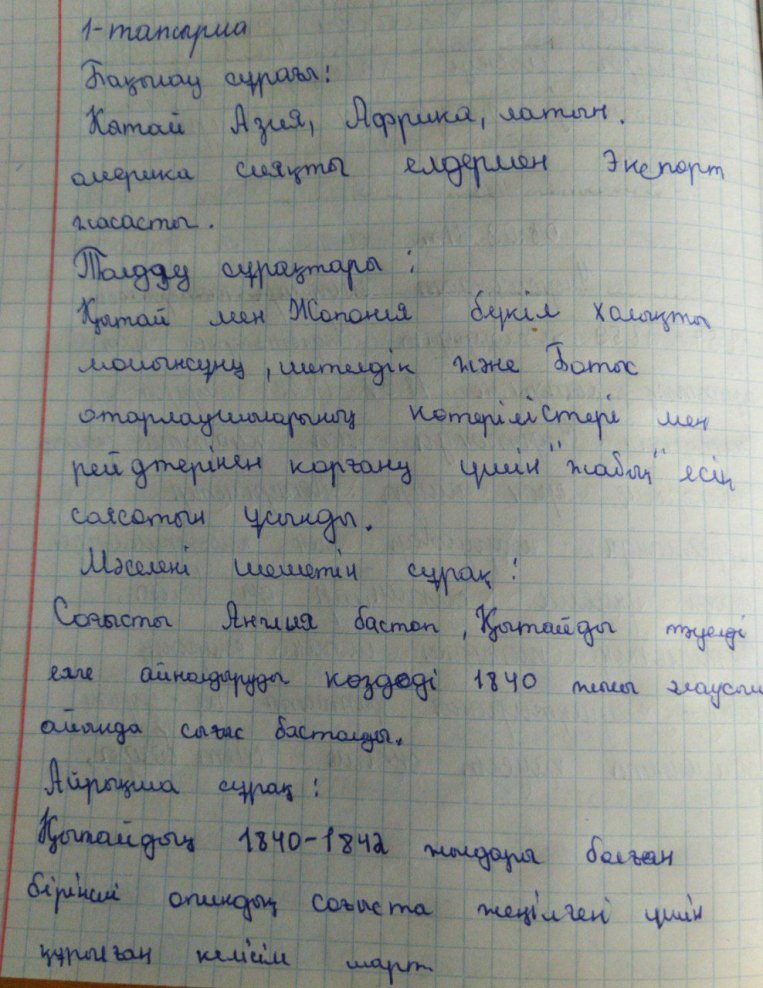 1-тапсырма
Бақылау сұрағы:
Катай Азия, Африка, латын.
америка сияқты елдермен Экспорт
жасасты.
Талдау сұрақтары :
Қытай мен Жапония бүкіл халықты
мойынсұну, шетелдік және Батыс
отарлаушыларының көтерілістері мен
рейдтерінен қорғану үшін "жабық" есік
саясатын ұсынды.
Мәселені шешетін сұрақ :
Соғысты Англия бастап, Қытайды тәуелді
елге айналдыруды көздеді 1840 жылы маусым
айында сығыс басталды.
Айрықша сұрақ :
Қытайдың 1840-1842 жылдары болған
бірінші опиндық соғыста жеңілгені үшін
құрылған келісім шарт